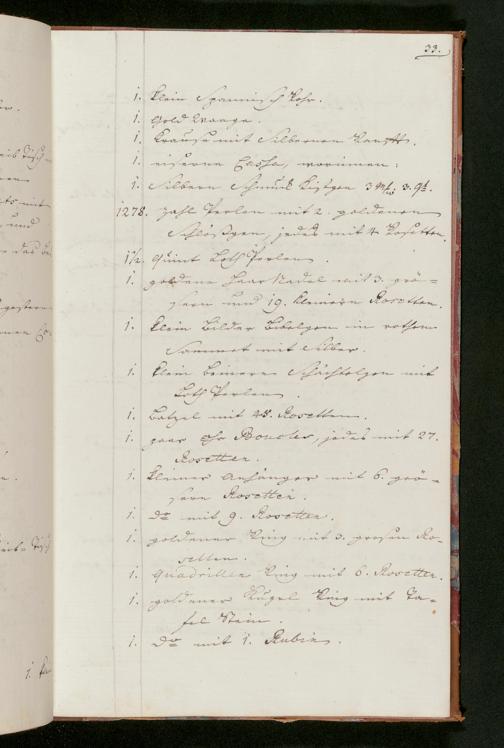 33.
1. klein Spannisch Rohr.
1. Gold Waage.
1. mit Silbernen
1. eiserne Cassa, worinnen:
1. Silbern Schmuck Kistgen 3 3.
1278. Zahl Perlen mit 2. goldenen
Schlößgen, jedes mit 4. Rosetten.
1 1/2. Quint Loth Perlen.
1. goldene Haar Nadel mit 3. grö-
sern und 19. kleinern Rosetten.
1. klein Bilder Bibelgen in rothem
Sammet mit Silber.
1. klein beinern Schächtelgen mit
Loth Perlen.
1. mit 48. Rosetten.
1. paar Ohr Boucles, jedes mit 27.
Rosetten.
1. kleiner Anhänger mit 6. grö-
sern Rosetten.
1. do mit 9. Rosetten.
1. goldener Ring mit 3. grosen Ro-
setten.
1. Quadrillen Ring mit 6. Rosetten.
1. goldener Kugel Ring mit Ta-
fel Stein.
1. do mit 1. Rubin.